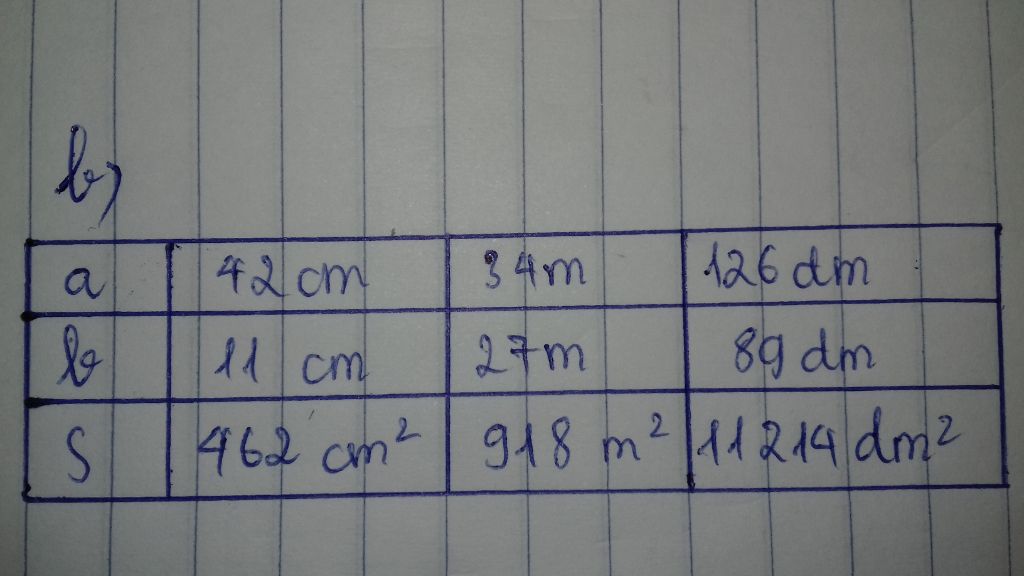 b)
a 42 cm 34 m 126 dm
b 11 cm 27 m 89 dm
S 462 cm² 918 m² 11214 dm²